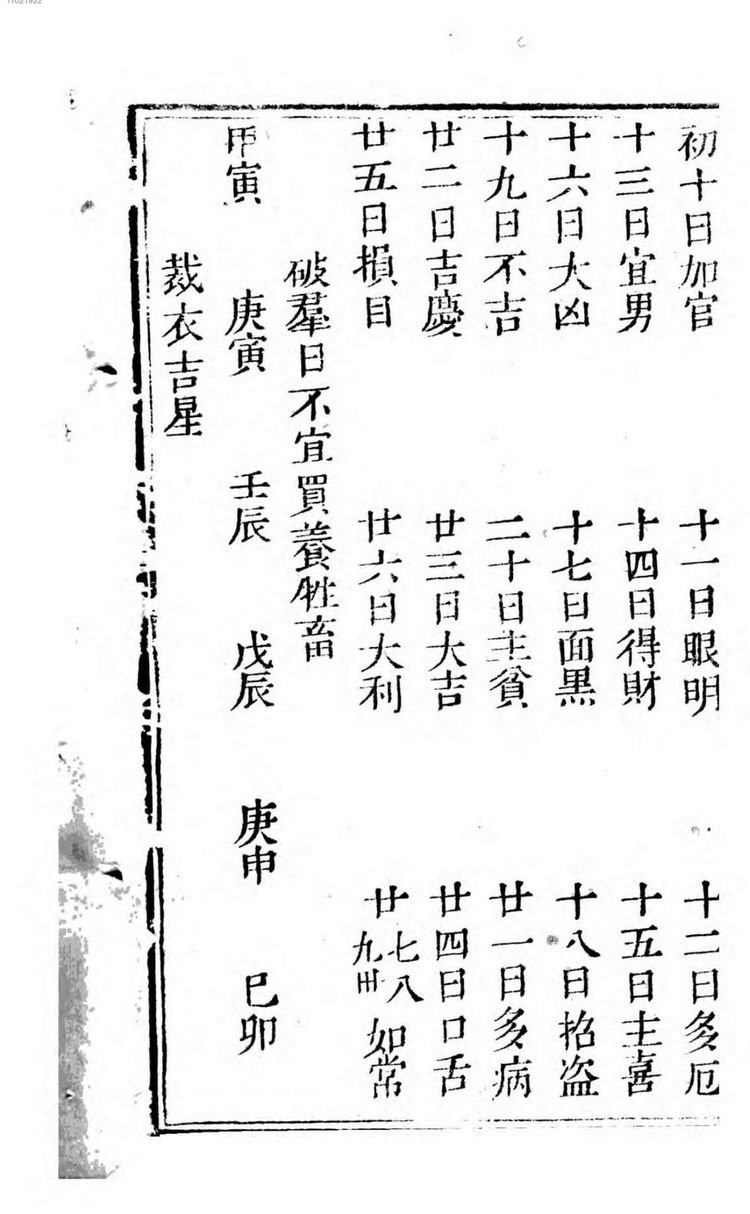 11021922
初十日加官 十一日眼明 十二日多厄
十三日宜男 十四日得財 十五日主喜
十六日大凶 十七日面黑 十八日招盜
十九日不吉 二十日主貧 廿一日多病
廿二日吉慶 廿三日大吉 廿四日口舌
廿五日損目 廿六日大利 廿七八九卅如常
破羣日不宜買養牲畜
甲寅 庚寅 壬辰 戊辰 庚申 巳卯
裁衣吉星